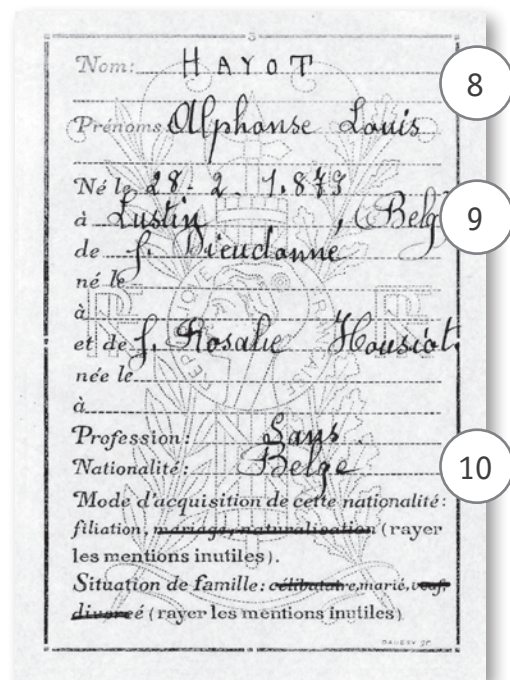 3
Nom: HAYOT
8
Prénoms: Alphonse Louis
Né le 28-2 1.873
à Lustin, Belg
9
de f. Dieudonne
né le
à
et de f. Rosalie Housiat.
née le
à
Profession: Sans
Nationalité: Belge
10
Mode d'acquisition de cette nationalité:
filiation, mariage, naturalisation (rayer
les mentions inutiles).
Situation de famille: célibataire, marié, veuf,
divorcé (rayer les mentions inutiles)
RF RF
REPUBLIQUE FRANÇAISE